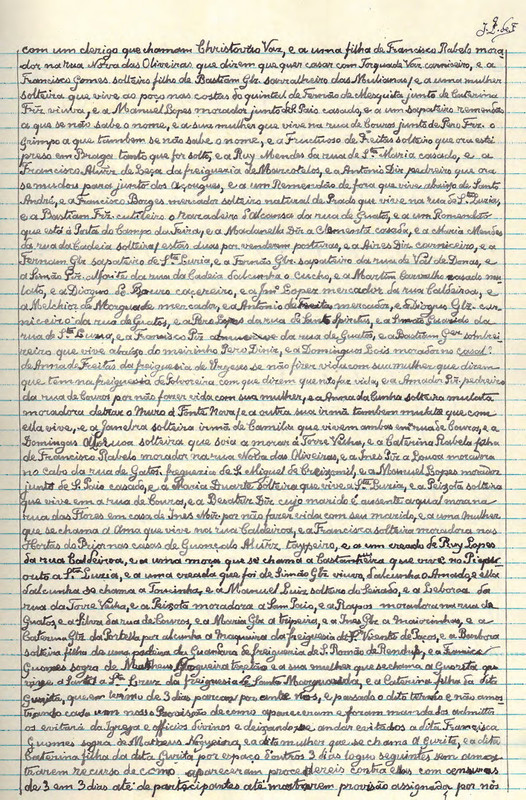 com um clerigo que chamam Christovão Vaz, e a uma filha de Francisco Rabelo mora
dor na rua Nova das Oliveiras que dizem que quer casar com Torquade Vaz carniceiro, e a
Francisco Gomes solteiro filho de Bastiam Glz. sarralheiro das Mulianas, e a uma mulher
solteira que vive ao poço nas costas do quintal de Fernão de Mesquita junto de Caterina
Frz viuva, e a Manuel Lopes morador junto de S. Paio casado, e a um sapateiro remendão
a que se não sabe o nome, e a sua mulher que vive na rua de Couros junto de Pero Frz. o
Grimpo a que tambem se não sabe o nome, e a Fructuoso de Freitas solteiro que ora está
preso em Braga tanto que for solto, e a Ruy Mendes da rua de Sta Maria casado, e a
Francisco Alvrz de Leça da freiguesia de Marcotelos, e a Antonio Diz pedreiro que ora
se mudou para junto dos Açougues, e a um Remendão de fora que vive abaixo de Santo
André, e a Francisco Borges mercador solteiro natural de Prado que vive na rua de S. Luzia,
e a Bastiam Frz. cutileiro e marcadeiro d'alcunsa da rua de Gatos, e a um Remendão
que está á Porta do Campo da Feira, e a Madanella Diz a Clementa casada, e a Maria Mendes
da rua da Cadeia solteira, estas duas por venderem posturas, e a Aires Diz carniceiro, e a
Fernam Glz sapateiro de Sta Luzia, e a Fernão Glz. sapateiro da rua de Val de Donas, e
a Simão Piz. Alfaite da rua da Cadeia d'alcunha o Cucho, e a Martim Carvalho casado mu
lato, e a Diogo de Bouro caçereiro, e a Jmo Lopez mercador da rua Caldeiroa, e
a Melchior de Morgade mercador, e a Antonio de Freitas mercador, e a Diogo Glz. car-
niceiro da rua de Gatos, e a Pero Lopes da rua do Santo Spiritus, e a Simão Guarado da
rua de Sta Luzia, e a Francisco Piz da rua de Gatos, e a Bastiam Glz sombrei
reiro que vive abaixo do meirinho Pero Diniz, e a Domingos Lois morador no casal
de Anna de Freitas da freiguesia de Urgezes se não fizer vida com sua mulher que dizem
que tem na freiguesia de Polvoreira com que dizem que não faz vida, e a Amador Piz. pedreiro
da rua de Couros por não fazer vida com sua mulher, e a Anna da Cunha solteira mulata
moradora detraz o Muro d Fonte Nova, e a outra sua irmã tambem mulata que com
ella vive, e a Janebra solteira irmã de Camilla que vivem ambas em rua de Couros, e a
Domingas solteira que soia a morar á Torre Velha, e a Caterina Rabelo filha
de Francisco Rabelo morador na rua Nova das Oliveiras, e a Ines Piz a Louva moradora
no cabo da rua de Gatos, freguezia de S. Miguel de Creixomil, e a Manuel Lopes morador
junto de S. Paio casado, e a Maria Duarte solteira que vive a Sta Luzia, e a Peixota solteira
que vive em a rua de Couros, e a Beatriz Diz cujo marido é ausente a qual mora na
rua das Flores em casa de Ines Mor por não fazer vida com seu marido, e a uma mulher
que se chama d Ama que vive na rua Caldeiroa, e a Francisca solteira moradora nas
Hortas do Prior nas casas de Gonçalo Alvrz taypeiro, e a um creado de Ruy Lopes
da rua Caldeiroa, e a uma moça que se chama a Castanheira que vive no
outo a Sta Luzia, e a uma creada que foi de Simão Glz viuvo, d'alcunha o Amado, e ella
d'alcunha se chama a Toucinha, e a Manuel Luiz solteiro do Peixado, e a Leboroa da
rua da Torre Velha, e a Peixota moradora a Sam Paio, e a Raposa moradora na rua de
Gatos, e a Silva da rua de Couros, e a Maria Glz a tripeira, e a Ines Glz a Maiorinhas, e a
Caterina Glz da Portella por alcunha a Maquieira da freiguesia de S. Vicente de Paços, e a Barbora
solteira filha de uma padeira da Guandara de freiguesia de S. Romão de Rendufe, e a
Guomes sogra de Matheus Nogueira tecelão e a sua mulher que se chama a Gurita que
vivem a Santa Cruz da freiguesia de Santa Margarida, e a Caterina filha da dita
Gurita, que em termo de 3 dias pareção por ante nós, e passado o dito termo e não amos
trando cada um nossa Provisão de como apareceram e foram mandados admittir
os evitará da Igreja e officios divinos e deixando se andar evitados a dita Francisca
Guomes sogra de Matheus Nogueira, e a dita mulher que se chama a Gurita, e a dita
Catherina filha da dita Gurita por espaço d'outros 3 dias logo seguintes sem amos
trarem recurso de como apareceram procedereis contra ellas com censuras
de 3 em 3 dias até de participantes até mostrarem provisão assignada por nós